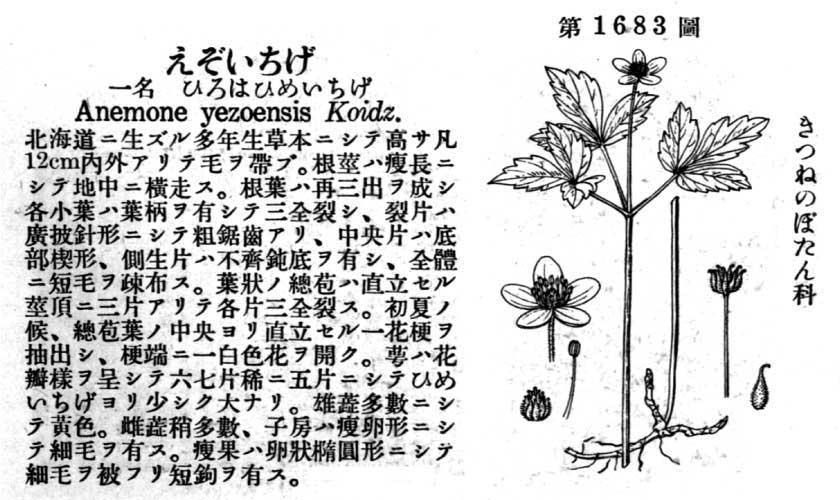 第1683圖
きつねのぼたん科
えぞいちげ
一名 ひろはひめいちげ
Anemone yezoensis Koidz.
北海道ニ生ズル多年生草本ニシテ高サ凡
12cm內外アリテ毛ヲ帶ブ。根莖ハ瘦長ニ
シテ地中ニ橫走ス。根葉ハ再三出ヲ成シ
各小葉ハ葉柄ヲ有シテ三全裂シ、裂片ハ
廣披針形ニシテ粗鋸齒アリ、中央片ハ底
部楔形、側生片ハ不齊鈍底ヲ有シ、全體
ニ短毛ヲ疎布ス。葉狀ノ總苞ハ直立セル
莖頂ニ三片アリテ各片三全裂ス。初夏ノ
候、總苞葉ノ中央ヨリ直立セル一花梗ヲ
抽出シ、梗端ニ一白色花ヲ開ク。萼ハ花
瓣樣ヲ呈シテ六七片稀ニ五片ニシテひめ
いちげヨリ少シク大ナリ。雄蕋多數ニシ
テ黃色。雌蕋稍多數、子房ハ瘦卵形ニシ
テ細毛ヲ有ス。瘦果ハ卵狀橢圓形ニシテ
細毛ヲ被フリ短鉤ヲ有ス。